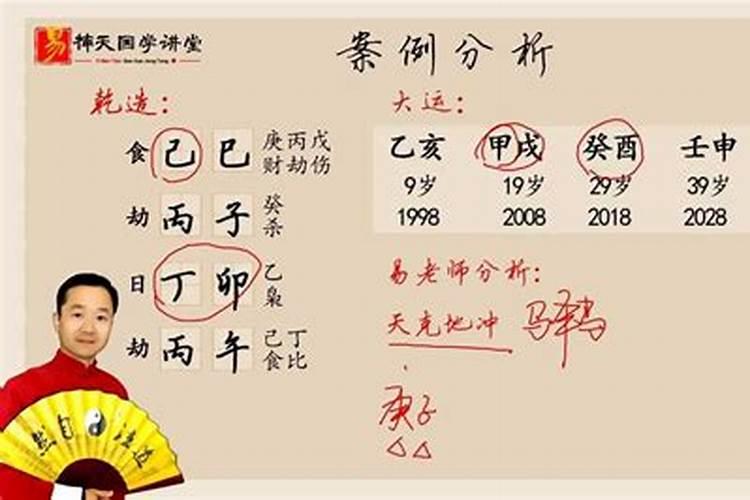 易 楠天国学讲堂
案例分析
乾造:
食 己 巳 庚丙戊
财劫伤
劫 丙 子 癸
杀
日 丁 卯 乙
枭
劫 丙 午 己丁
食比
大运:
乙亥 甲戌 癸酉 壬申
9岁 19岁 29岁 39岁
1998 2008 2018 2028
易老师分析:
天克地冲
庚子
道法自然